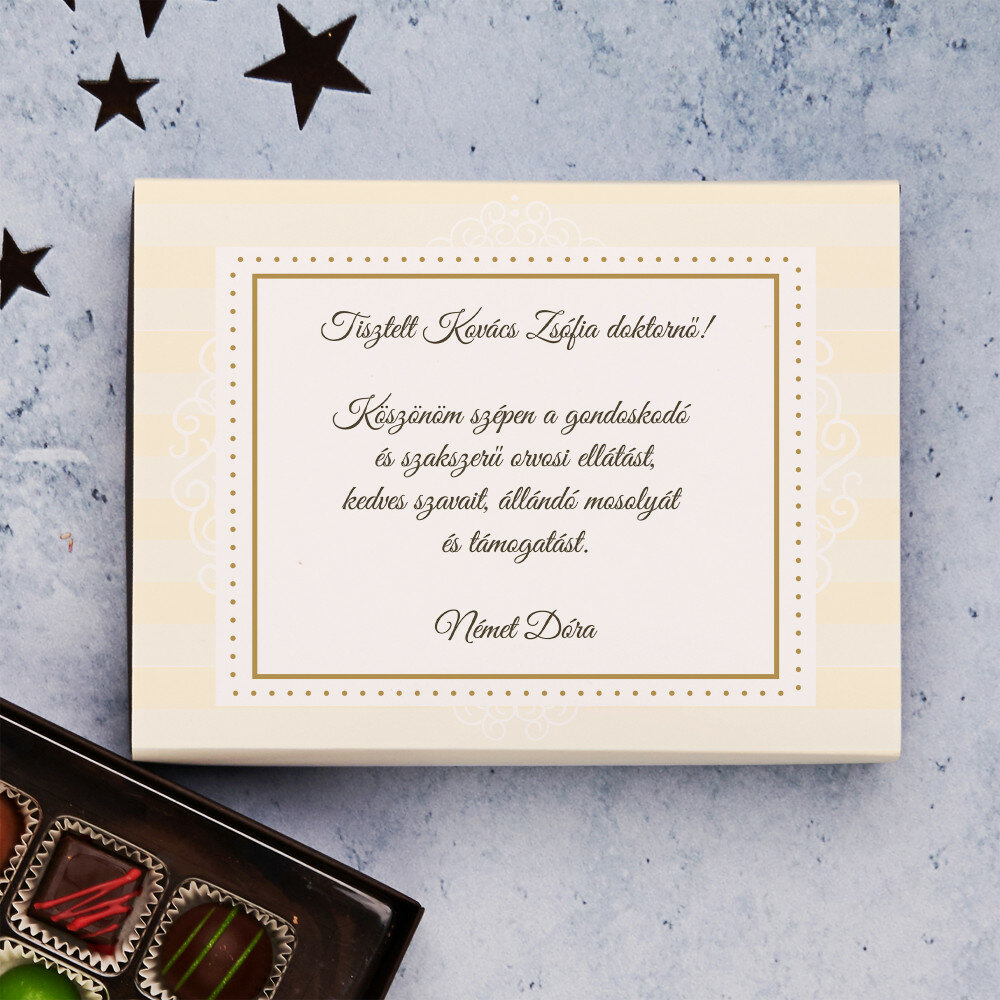 Tisztelt Kovács Zsófia doktornő!
Köszönöm szépen a gondoskodó
és szakszerű orvosi ellátást,
kedves szavait, állándó mosolyát
és támogatást.
Német Dóra